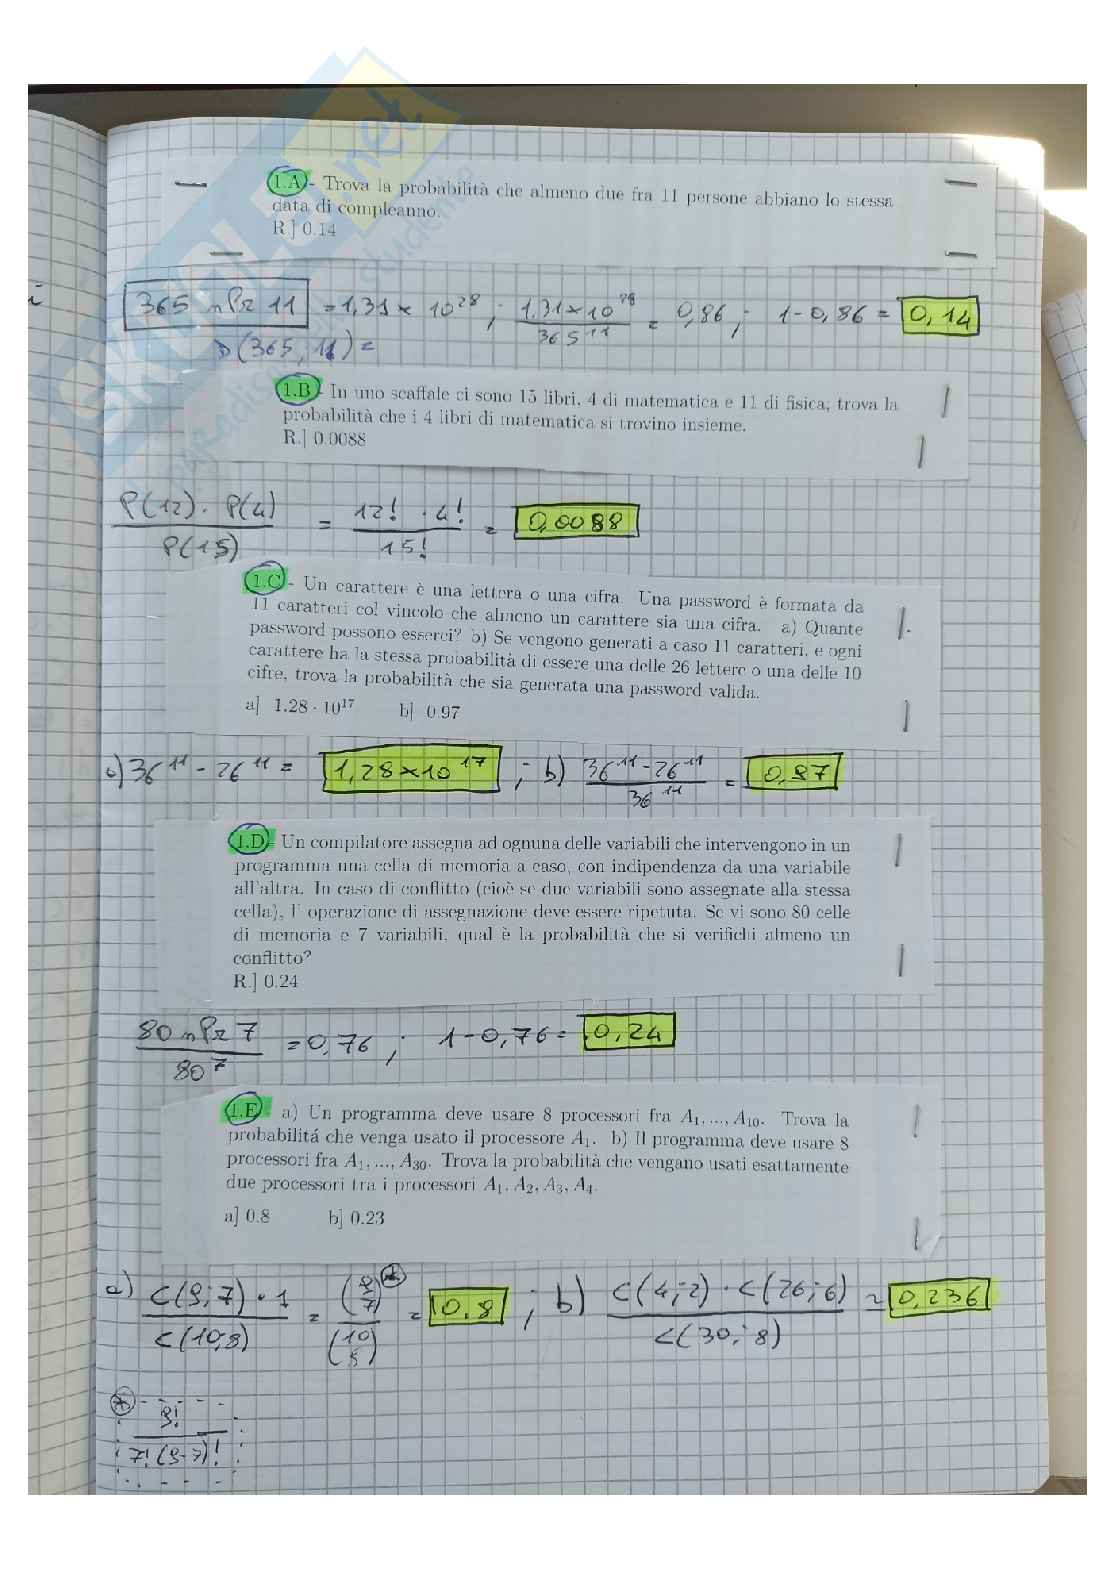 1.A - Trova la probabilità che almeno due fra 11 persone abbiano lo stessa
data di compleanno.
R.] 0.14
365 nPr 11 = 1,31 × 10^28 ; 1,31×10^28 / 365^11 = 0,86 ; 1 - 0,86 = 0,14
D(365, 11) =
1.B - In uno scaffale ci sono 15 libri, 4 di matematica e 11 di fisica; trova la
probabilità che i 4 libri di matematica si trovino insieme.
R.] 0.0088
P(12) · P(4) / P(15) = 12! · 4! / 15! = 0,0088
1.C - Un carattere è una lettera o una cifra. Una password è formata da
11 caratteri col vincolo che almeno un carattere sia una cifra. a) Quante
password possono esserci? b) Se vengono generati a caso 11 caratteri, e ogni
carattere ha la stessa probabilità di essere una delle 26 lettere o una delle 10
cifre, trova la probabilità che sia generata una password valida.
a] 1.28 · 10^17 b] 0.97
a) 36^11 - 26^11 = 1,28×10^17 ; b) 36^11 - 26^11 / 36^11 = 0,97
1.D - Un compilatore assegna ad ognuna delle variabili che intervengono in un
programma una cella di memoria a caso, con indipendenza da una variabile
all'altra. In caso di conflitto (cioè se due variabili sono assegnate alla stessa
cella), l' operazione di assegnazione deve essere ripetuta. Se vi sono 80 celle
di memoria e 7 variabili, qual è la probabilità che si verifichi almeno un
conflitto?
R.] 0.24
80 nPr 7 / 80^7 = 0,76 ; 1 - 0,76 = 0,24
1.E a) Un programma deve usare 8 processori fra A1, ..., A10. Trova la
probabilitá che venga usato il processore A1. b) Il programma deve usare 8
processori fra A1, ..., A30. Trova la probabilità che vengano usati esattamente
due processori tra i processori A1, A2, A3, A4.
a] 0.8 b] 0.23
a) C(9;7) · 1 / C(10;8) = (9 7) / (10 8) = 0,8 ; b) C(4;2) · C(26;6) / C(30;8) = 0,236
9!
7!(9-7)!